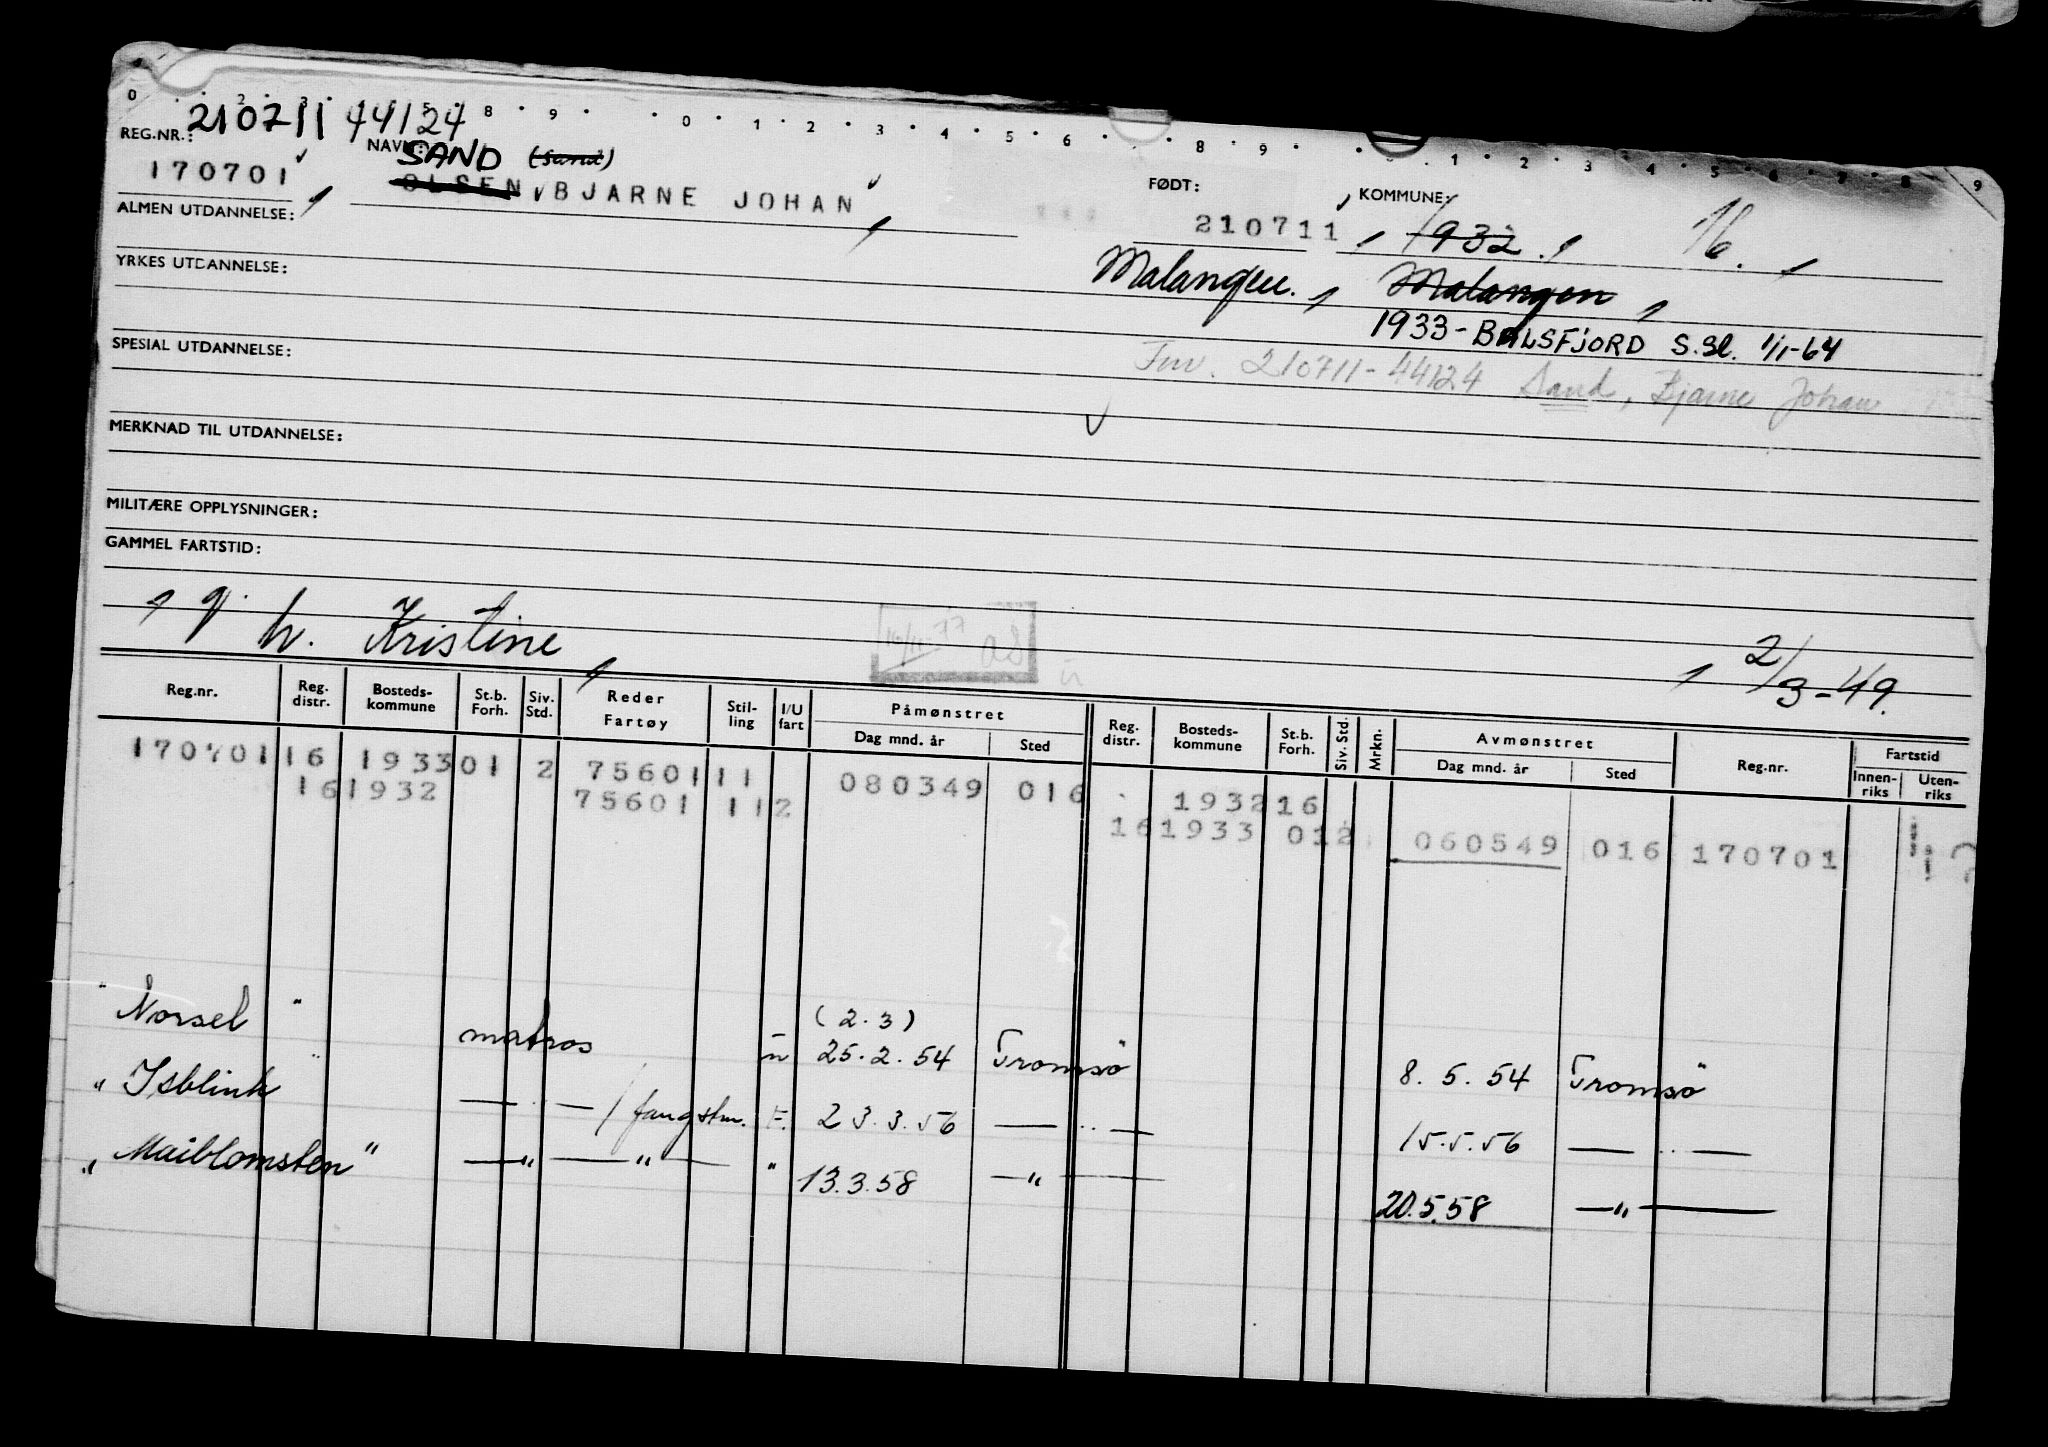 0 2 3 5 8 9 0 1 2 3 4 5 6 8 9 1 2 3 4 5 6 7 8 9
210711 44124
REG.NR.: NAVN: SAND (Sand)
170701 OLSEN, BJARNE JOHAN
FØDT: KOMMUNE:
210711 1932. 16.
ALMEN UTDANNELSE:
Malangen. Malangen
YRKES UTDANNELSE:
1933 - BALSFJORD S.Sl. 1/1-64
SPESIAL UTDANNELSE:
210711-44124 Sand, Bjarne Johan
MERKNAD TIL UTDANNELSE:
MILITÆRE OPPLYSNINGER:
GAMMEL FARTSTID:
g. h. Kristine, 2/3-49.
Reg.nr. Reg. distr. Bosteds-kommune St.b. Forh. Siv. Std. Reder Fartøy Stil-ling I/U fart Påmønstret Dag mnd. år Sted Reg. distr. Bosteds-kommune St.b. Forh. Siv. Std. Mrkn. Avmønstret Dag mnd. år Sted Reg.nr. Fartstid Innen-riks Uten-riks
170701 16 1933 01 2 75601 11 080349 016 1932 16
16 1932 75601 11 2 16 1933 01 2 060549 016 170701
(2.3)
"Norsel" matros u 25.2.54 Tromsø 8.5.54 Tromsø
"Isblink" — " — / fangstm. F. 23.3.56 — " — 15.5.56 — " —
"Maiblomsten" — " — " — " 13.3.58 — " — 20.5.58 — " —